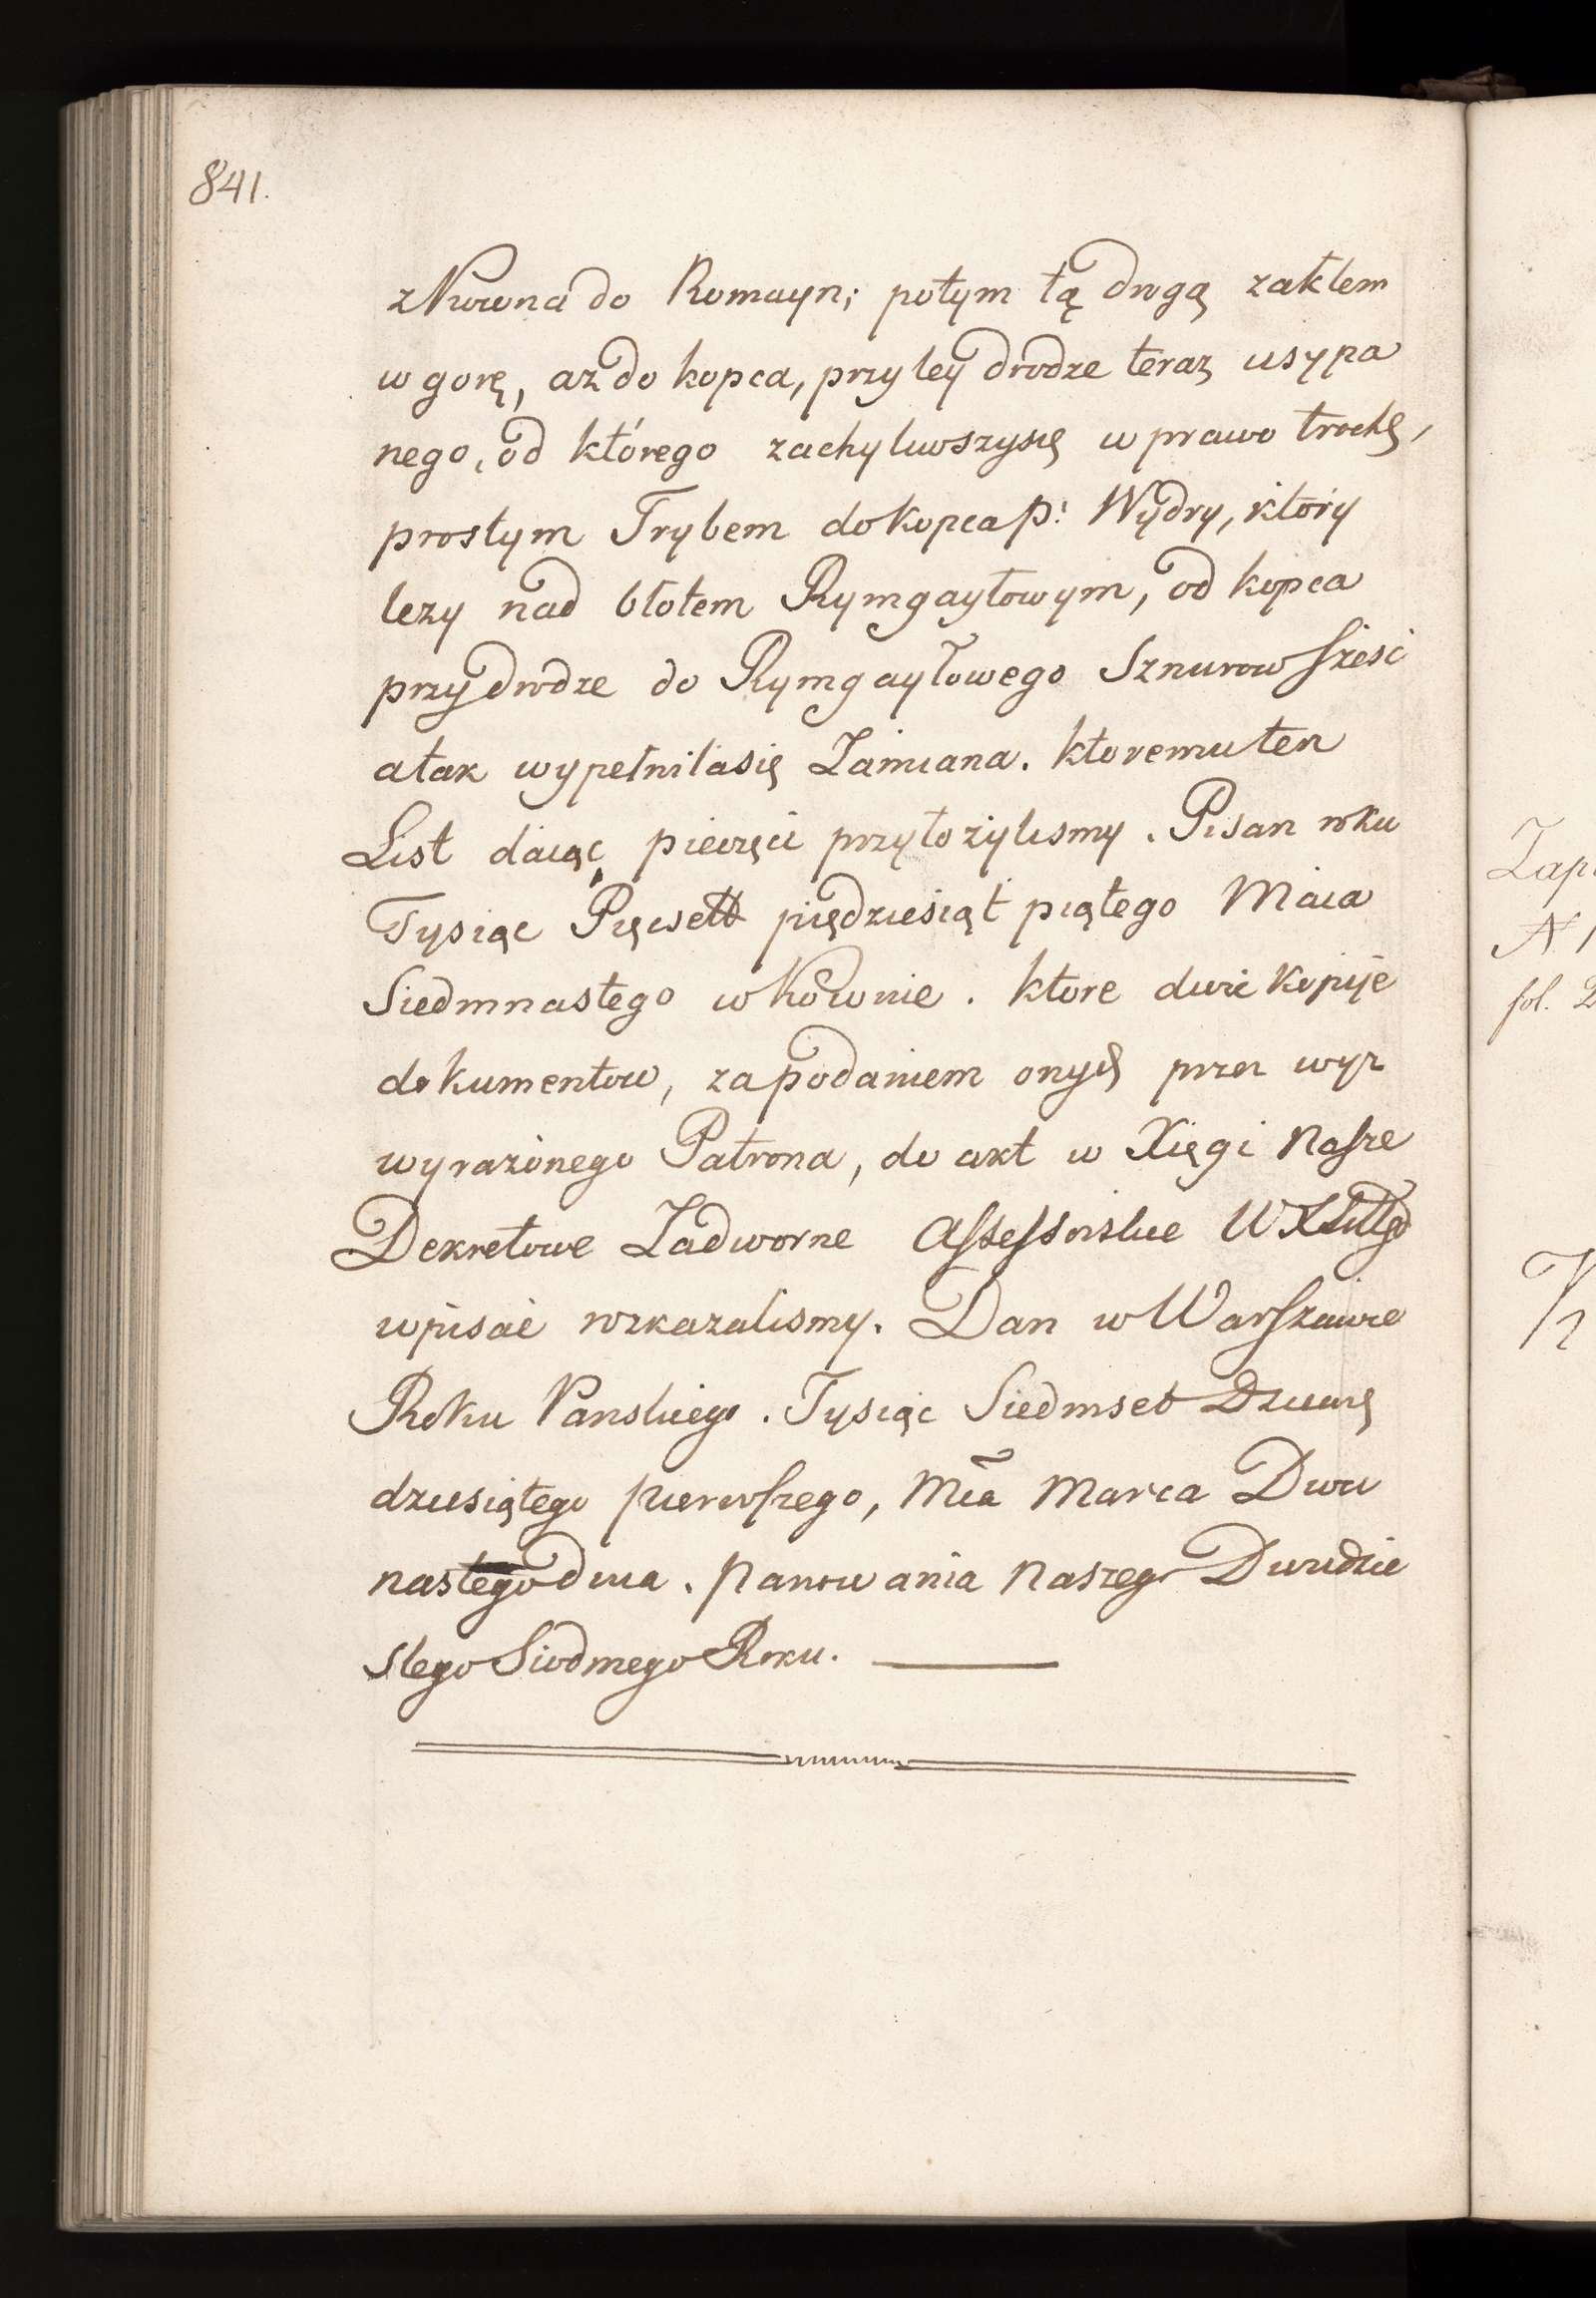 841.
z Nuwna do Romayn; potym tą drogą zakłem
w gorę, aż do kopca, przy tey drodze teraz usypa
nego, od którego zachyliwszysię w prawo trochę,
prostym Trybem do Kopca p: Wydry, ktory
lezy nad błotem Rymgayłowym, od kopca
przy drodze do Rymgayłowego Sznurow sześć
a tak wypełniłasię Zamiana. ktoremu ten
List daiąc pieczęci przyłożylismy. Pisan roku
Tysiąc Pięcsett piędziesiąt piątego Maia
Siedmnastego w Kownie. ktore dwie Kopije
dokumentow, za podaniem onych przez wyz
wyrażonego Patrona, do akt w Xięgi Nasze
Dekretowe Zadworne Assessorskie
wpisać rozkazalismy. Dan w Warszawie
Roku Panskiego. Tysiąc Siedmset Dziewię
dziesiątego pierwszego, Mca Marca Dwu
nastego dnia. Panowania Naszego Dwudzie
stego Siodmego Roku.
Zap
fol. 2